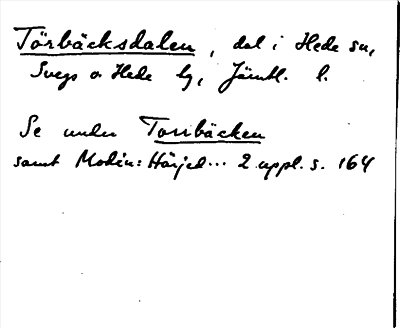 Törbäcksdalen, dal i Hede sn,
Svegs o Hede tg, Jämtl. l.
Se under Torrbäcken
samt Modin: Härjed... 2 uppl. s. 164